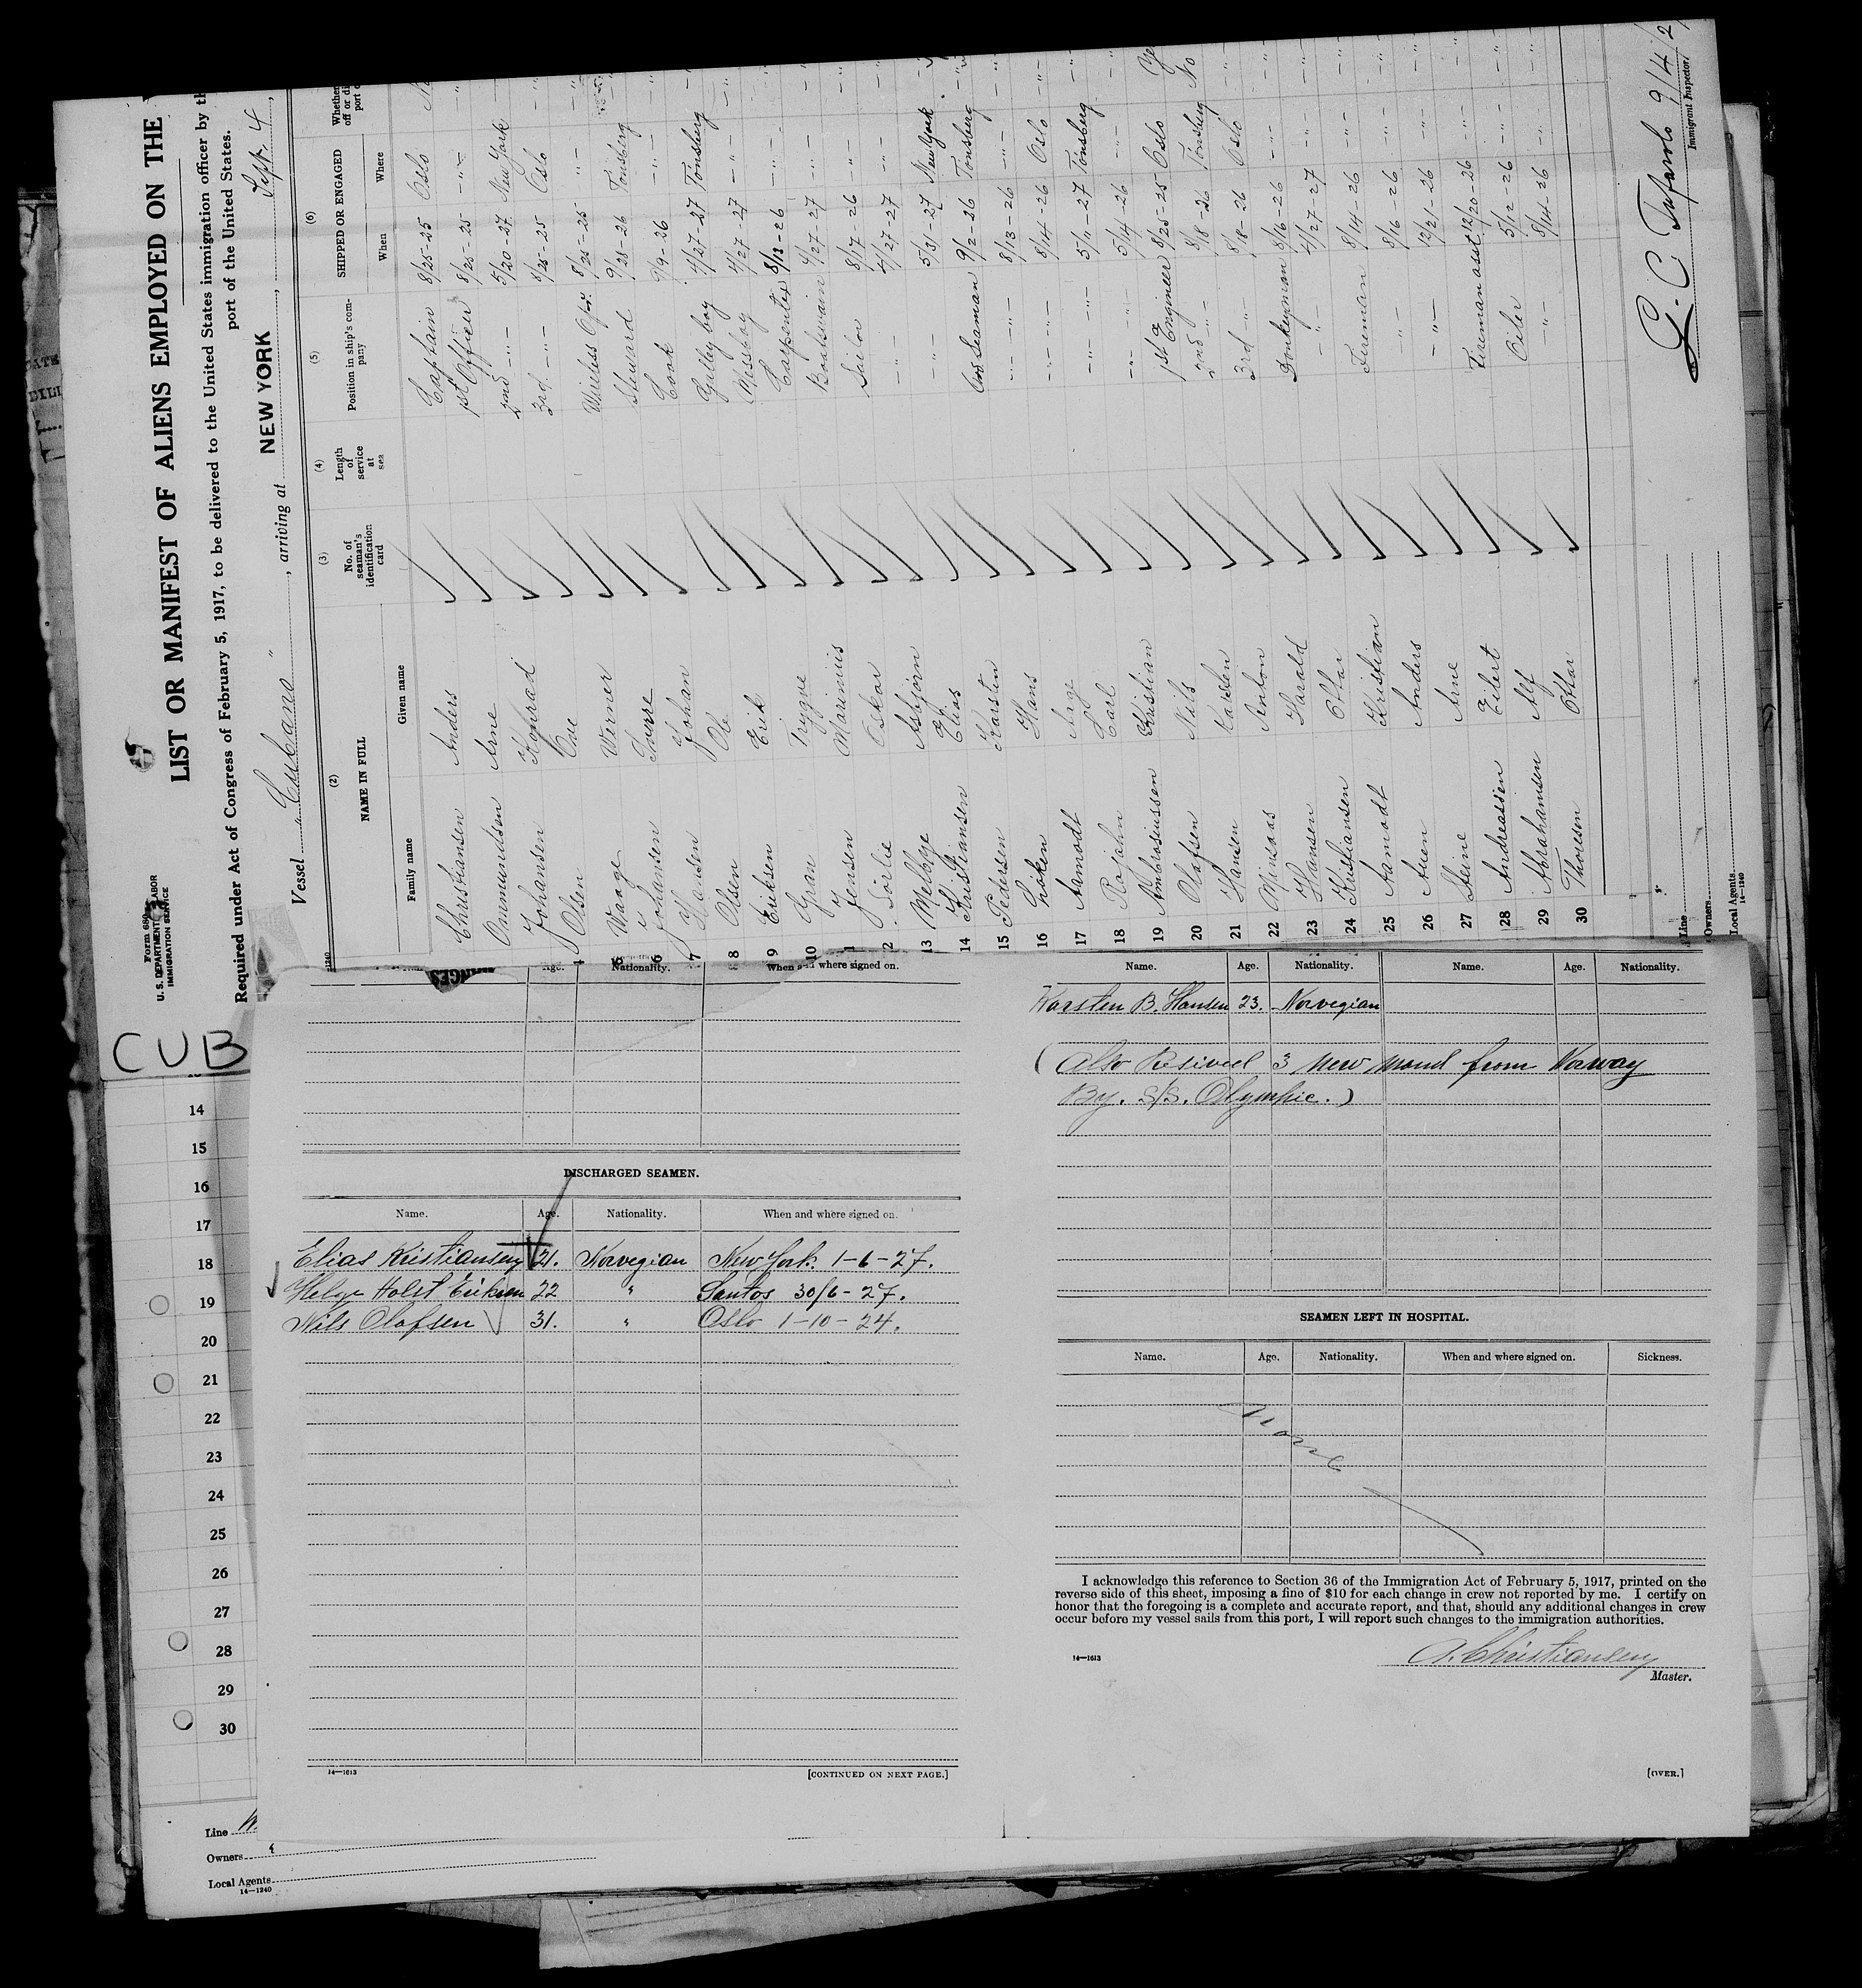 Form 680
U. S. DEPARTMENT LABOR
IMMIGRATION SERVICE
LIST OR MANIFEST OF ALIENS EMPLOYED ON THE
Required under Act of Congress of February 5, 1917, to be delivered to the United States immigration officer by th
port of the United States.
Vessel "Cubano", arriving at NEW YORK, Sept. 4
(2) (3) (4) (5) (6)
NAME IN FULL No. of seaman's identification card Length of service at sea Position in ship's company SHIPPED OR ENGAGED Whether
Family name Given name When Where
Christiansen Anders Captain 8/25-25 Oslo
Ommundsen Arne 1st Officer 8/25-25 -"-
Johansen Konrad 2nd -"- 5/20-27 New York
4 Olsen 3rd -"- 8/25-25 Oslo
5 Waage Werner Wireless Opr. 8/25-25 -"-
6 Johansen Sverre Steward 9/28-26 Tönsberg
7 Hansen Johan Cook 9/9-26 -"-
8 Olsen Ole Galley boy 4/27-27 Tönsberg
9 Eriksen Erik Messboy 4/27-27 -"-
10 Gran Trygve Carpenter 8/13-26 -"-
1 Jensen Marinius Boatswain 4/27-27 -"-
2 Sörlie Oskar Sailor 8/17-26 -"-
13 Melbye Asbjörn -"- 4/27-27 -"-
14 Kristiansen Elias -"- 5/31-27 New York
15 Pedersen Karsten Ord Seaman 9/2-26 Tönsberg
16 Löken Hans -"- 8/13-26 -"-
17 Aamodt Arge -"- 8/14-26 Oslo
18 Rojahn Carl -"- 5/11-27 Tönsberg
19 Ambrosiussen Kristian -"- 5/14-26 -"-
20 Olafsen Nils 1st Engineer 8/25-25 Oslo
21 Hansen Karsten 2nd -"- 8/18-26 Tönsberg
22 Anton 3rd -"- 8/18-26 Oslo
23 Hansen Harald Donkeyman 8/16-26 -"-
24 Kristiansen Ottar -"- 4/27-27 -"-
25 Aamodt Kristian Fireman 8/14-26 -"-
26 Auen Anders -"- 8/16-26 -"-
27 Arne -"- 12/21-26 -"-
28 Andreassen Eilert Fireman asst 12/20-26 -"-
29 Abrahamsen Alf Oiler 5/12-26 -"-
30 Thoresen Ottar -"- 8/14-26 -"-
Line
Owners
Local Agents
14—1240
9/4/2
Immigrant Inspector
CUB
14
15
16
17
18
19
20
21
22
23
24
25
26
27
28
29
30
Line
Owners
Local Agents
14—1240
Age. Nationality. When and where signed on.
DISCHARGED SEAMEN.
Name. Age. Nationality. When and where signed on.
Elias Kristiansen 21. Norvegian New York 1-6-27.
Helge Holst Eriksen 22 " Santos 30/6-27.
Nils Olafsen 31. " Oslo 1-10-24.
14—1613
[CONTINUED ON NEXT PAGE.]
Name. Age. Nationality. Name. Age. Nationality.
Karsten B. Hansen 23. Norvegian
(Also Resived 3 new mand from Norway
By. S/S. Olympic.)
SEAMEN LEFT IN HOSPITAL.
Name. Age. Nationality. When and where signed on. Sickness.
None
I acknowledge this reference to Section 36 of the Immigration Act of February 5, 1917, printed on the
reverse side of this sheet, imposing a fine of $10 for each change in crew not reported by me. I certify on
honor that the foregoing is a complete and accurate report, and that, should any additional changes in crew
occur before my vessel sails from this port, I will report such changes to the immigration authorities.
A. Christiansen
14—1613
Master.
[OVER.]